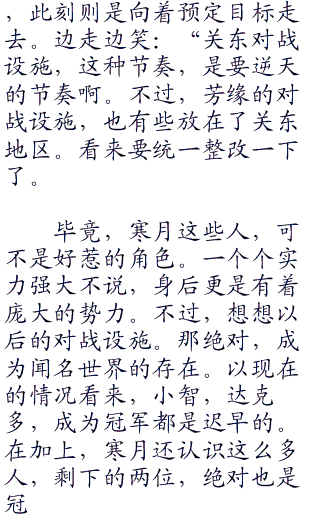 ，此刻则是向着预定目标走
去。边走边笑：“关东对战
设施，这种节奏，是要逆天
的节奏啊。不过，芳缘的对
战设施，也有些放在了关东
地区。看来要统一整改一下
了。
毕竟，寒月这些人，可
不是好惹的角色。一个个实
力强大不说，身后更是有着
庞大的势力。不过，想想以
后的对战设施。那绝对，成
为闻名世界的存在。以现在
的情况看来，小智，达克
多，成为冠军都是迟早的。
在加上，寒月还认识这么多
人，剩下的两位，绝对也是
冠